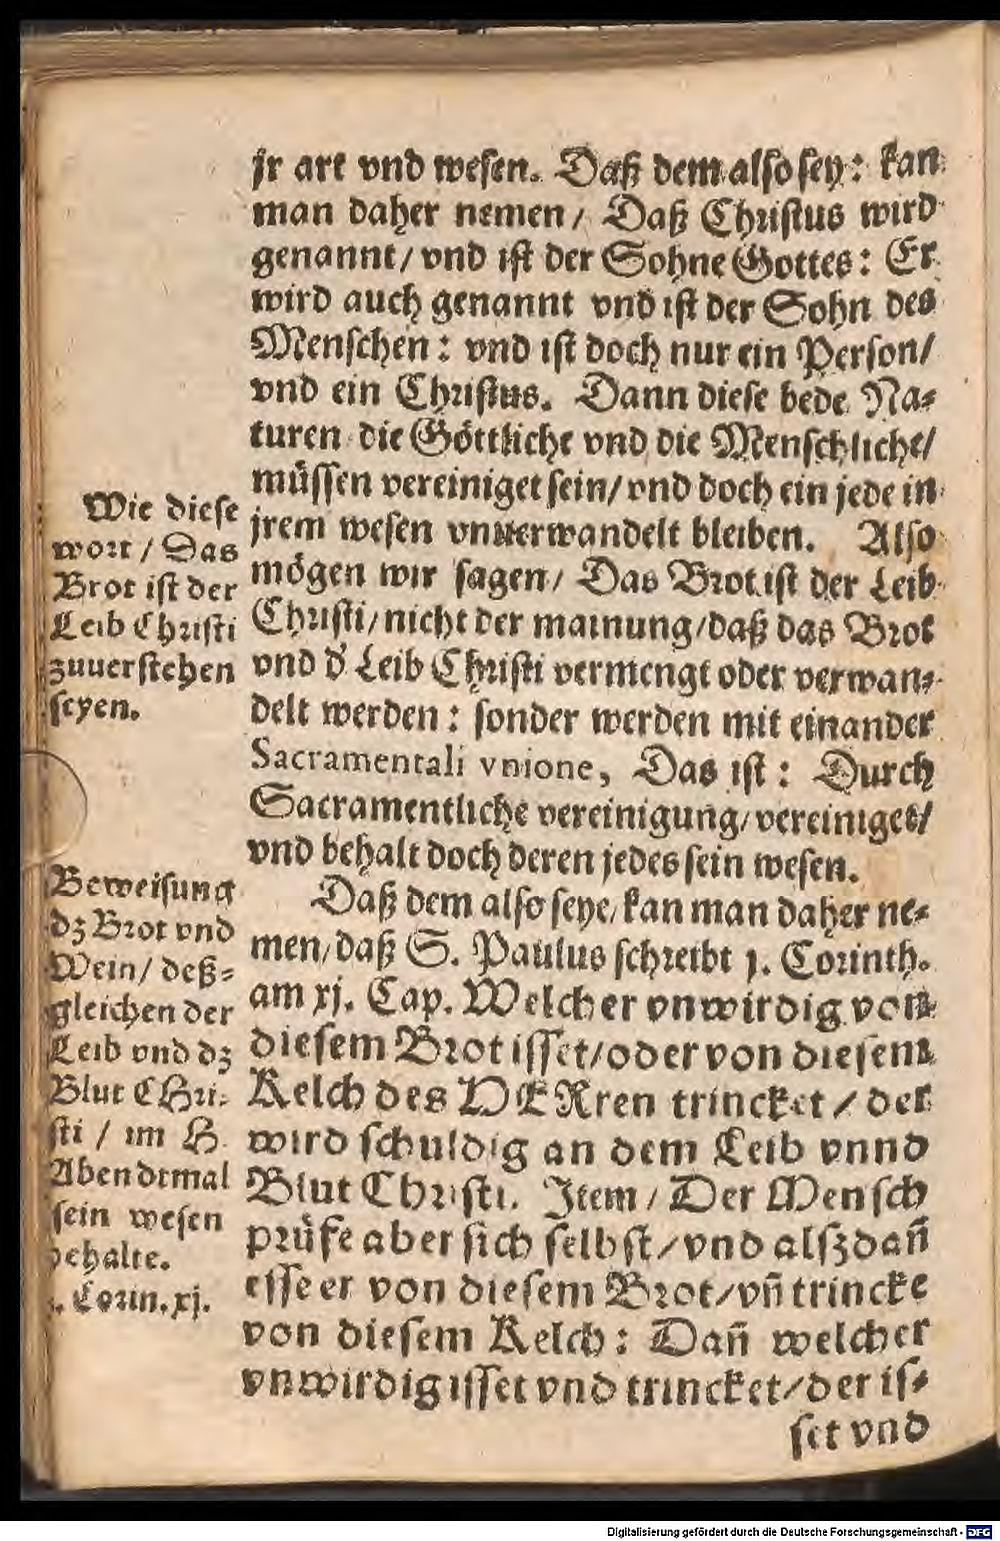 jr art vnd wesen. Daß dem also sey: kan
man daher nemen / Daß Christus wird
genannt / vnd ist der Sohne Gottes: Er
wird auch genannt vnd ist der Sohn des
Menschen: vnd ist doch nur ein Person /
vnd ein Christus. Dann diese bede Na⸗
turen die Göttliche vnd die Menschliche /
müssen vereiniget sein / vnd doch ein jede in
jrem wesen vnuerwandelt bleiben. Also
mögen wir sagen / Das Brot ist der Leib
Christi / nicht der mainung / daß das Brot
vnd d' Leib Christi vermengt oder verwan⸗
delt werden: sonder werden mit einander
Sacramentali vnione, Das ist: Durch
Sacramentliche vereinigung / vereiniget /
vnd behalt doch deren jedes sein wesen.
Daß dem also seye / kan man daher ne⸗
men / daß S. Paulus schreibt j. Corinth.
am xj. Cap. Welcher vnwirdig von
diesem Brot isset / oder von diesem
Kelch des HERren trincket / der
wird schuldig an dem Leib vnnd
Blut Christi. Item / Der Mensch
prüfe aber sich selbst / vnd alsʒdañ
esse er von diesem Brot / vñ trincke
von diesem Kelch: Dañ welcher
vnwirdig isset vnd trincket / der is⸗
set vnd
Wie diese
wort / Das
Brot ist der
Leib Christi
zuuerstehen
seyen.
Beweisung
dz Brot vnd
Wein / deß⸗
gleichen der
Leib vnd dz
Blut CHri⸗
sti / im H.
Abendtmal
sein wesen
behalte.
j. Corin. xj.
Digitalisierung gefördert durch die Deutsche Forschungsgemeinschaft - DFG